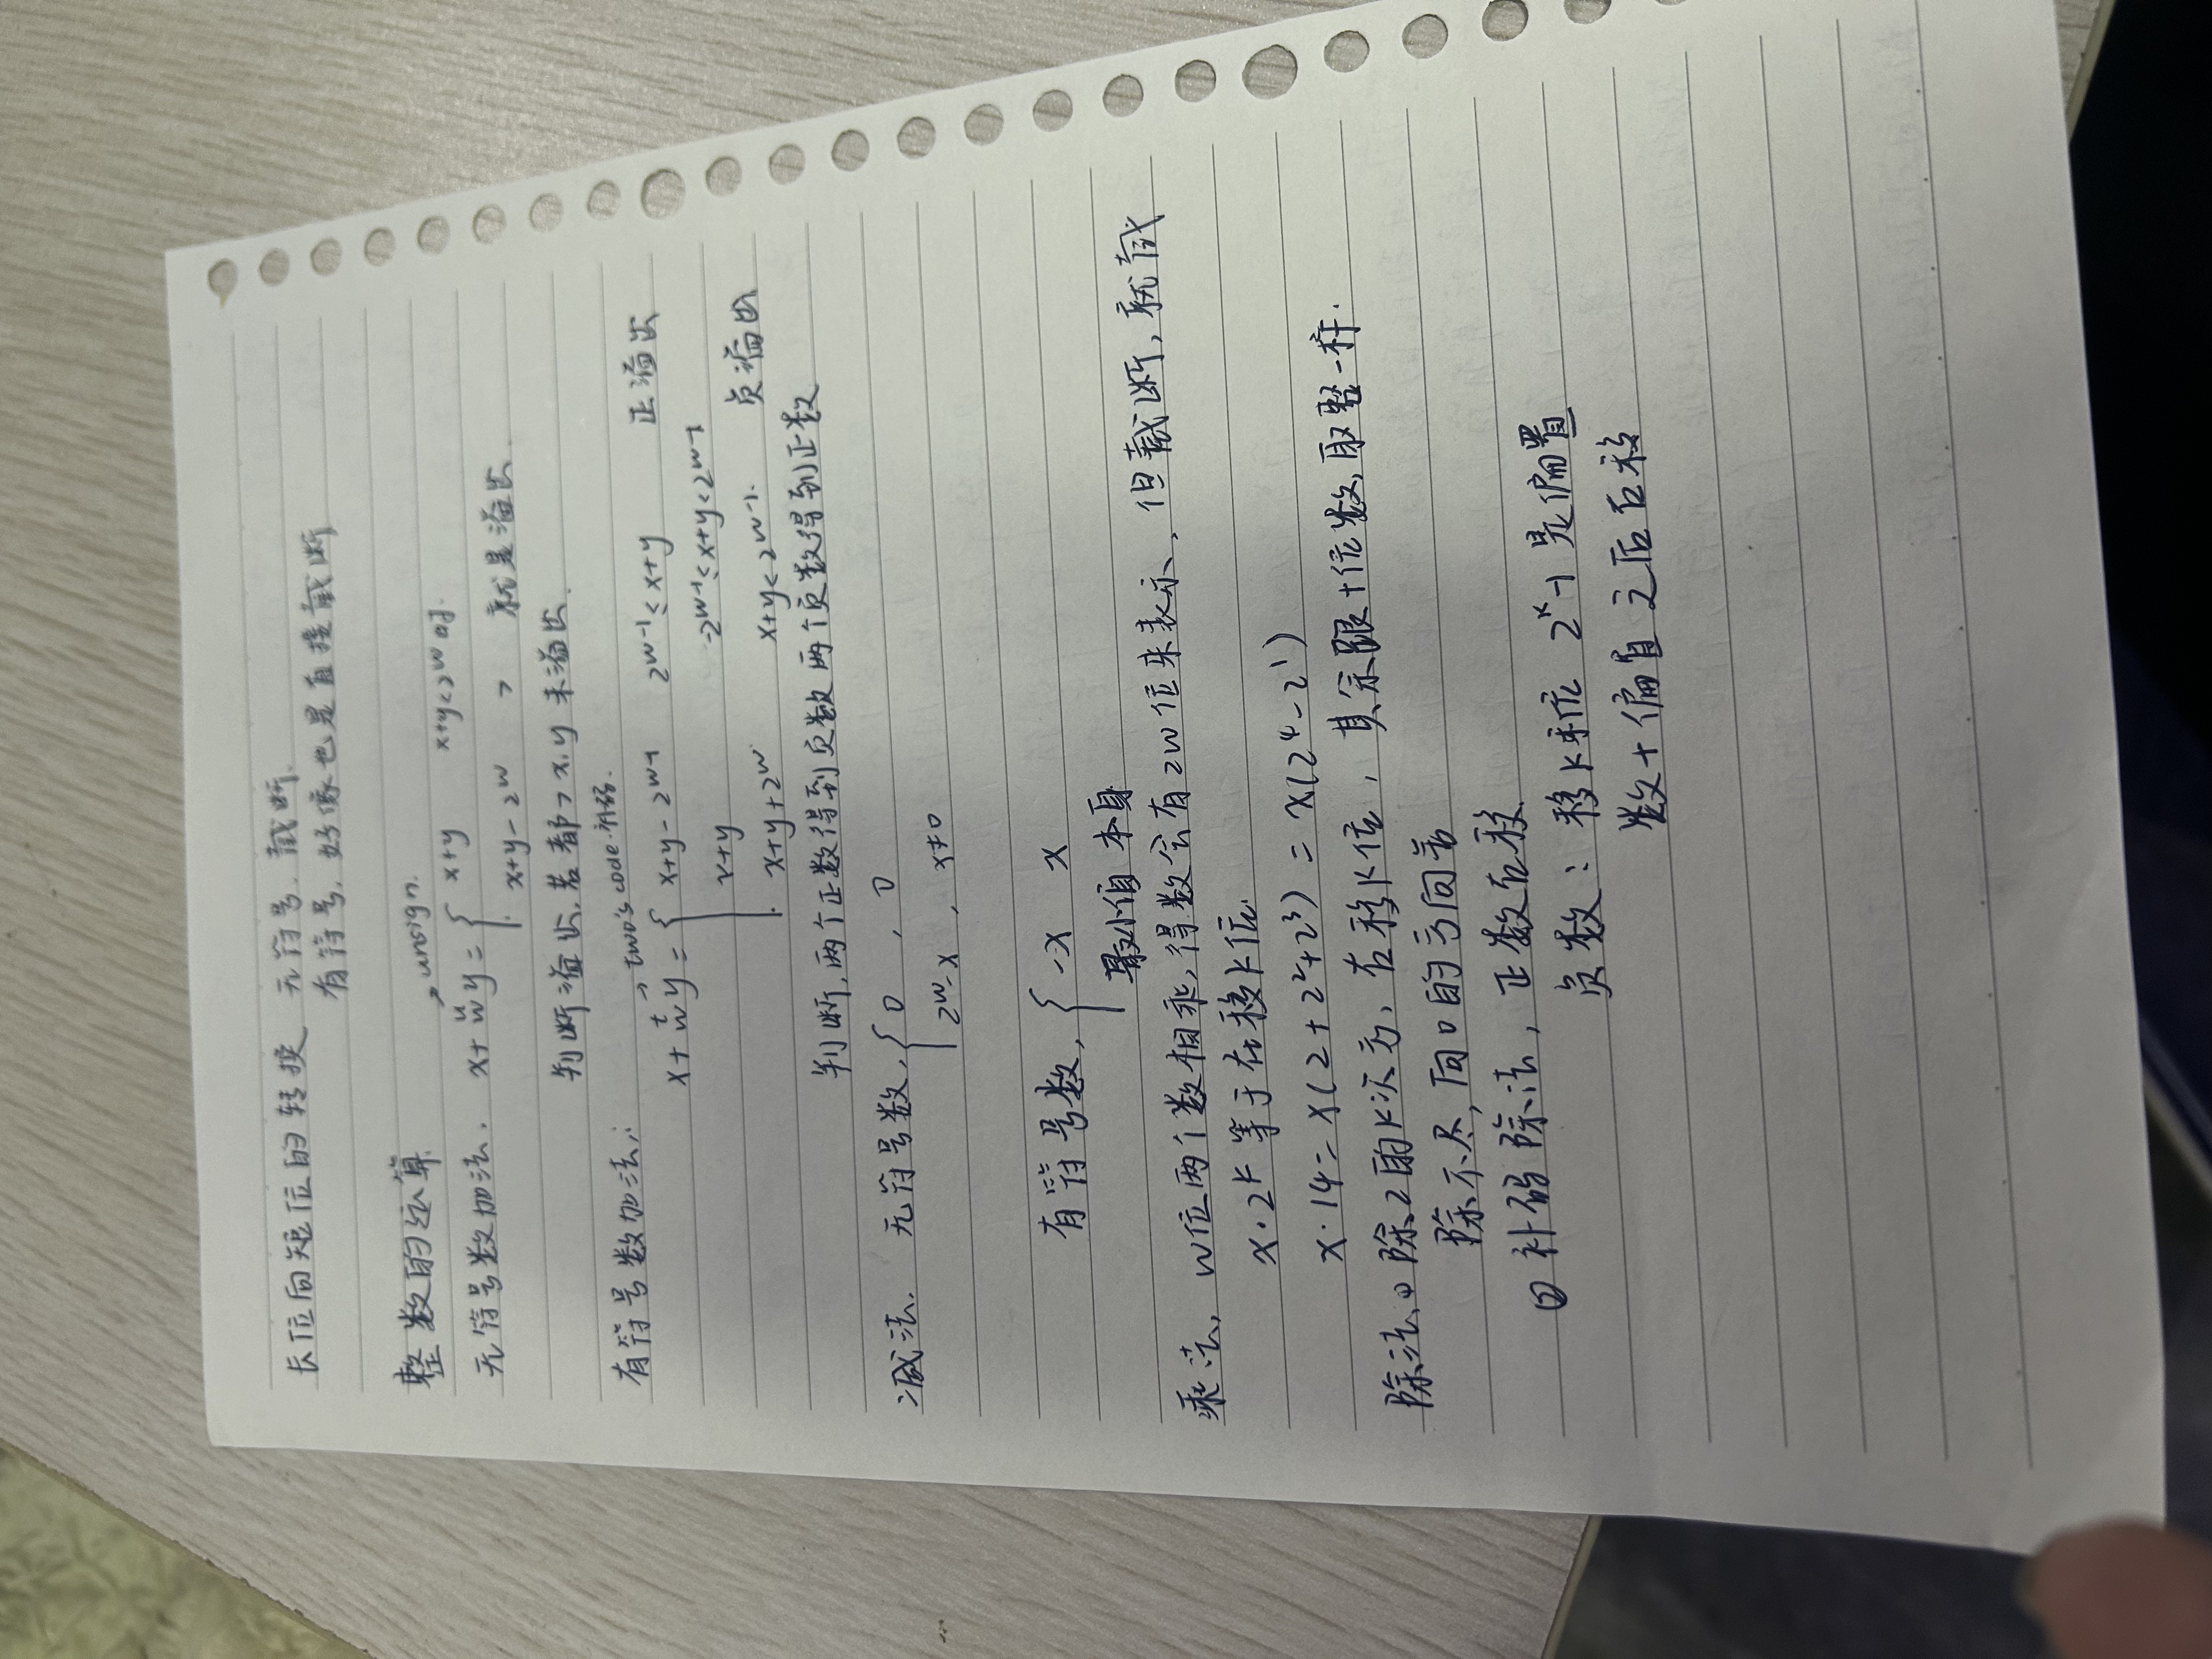 长位向短位的转换 无符号.截断.
有符号,好像也是直接截断
整数的运算
→ unsign.
无符号数加法. x+ᵘwy = { x+y x+y<2^w时.
x+y-2^w > 就是溢出.
判断溢出,若都>x.y未溢出.
有符号数加法:
→ two's code.补码.
x+ᵗwy = { x+y-2^w-1 2^w-1≤x+y 正溢出
x+y -2^w-1≤x+y<2^w-1
x+y+2^w x+y<2^w-1. 负溢出
判断,两个正数得到负数 两个负数得到正数
减法. 无符号数, { 0 , 0
2^w-x , x≠0
有符号数, { -x x
最小值 本身
乘法, w位两个数相乘,得数会有2w位来表示,但截断,就截
x·2^k 等于左移k位.
x·14=x(2+2²+2³) = x(2⁴-2¹)
除法.① 除2的k次方,右移k位, 其余跟十位数,取整一样.
除不尽,向0的方向舍
② 补码除法,正数右移
负数: 移k 2^k-1 是偏置
数+偏置 之后右移